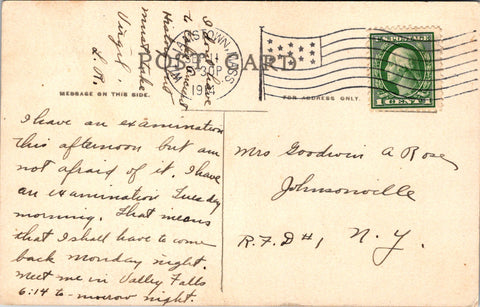 POST CARD
MESSAGE ON THIS SIDE.
FOR ADDRESS ONLY.
U.S. POSTAGE
TOWN, MASS
30P
I have an examination
this afternoon but am
not afraid of it. I have
an examination Tuesday
morning. That means
that I shall have to come
back Monday night.
Meet me in Valley Falls
6:14 to-morrow night.
I don't have
to take
must take
Virgil.
L. R.
Mrs Goodwin A Rose
Johnsonville
R.F.D #1 N. Y.